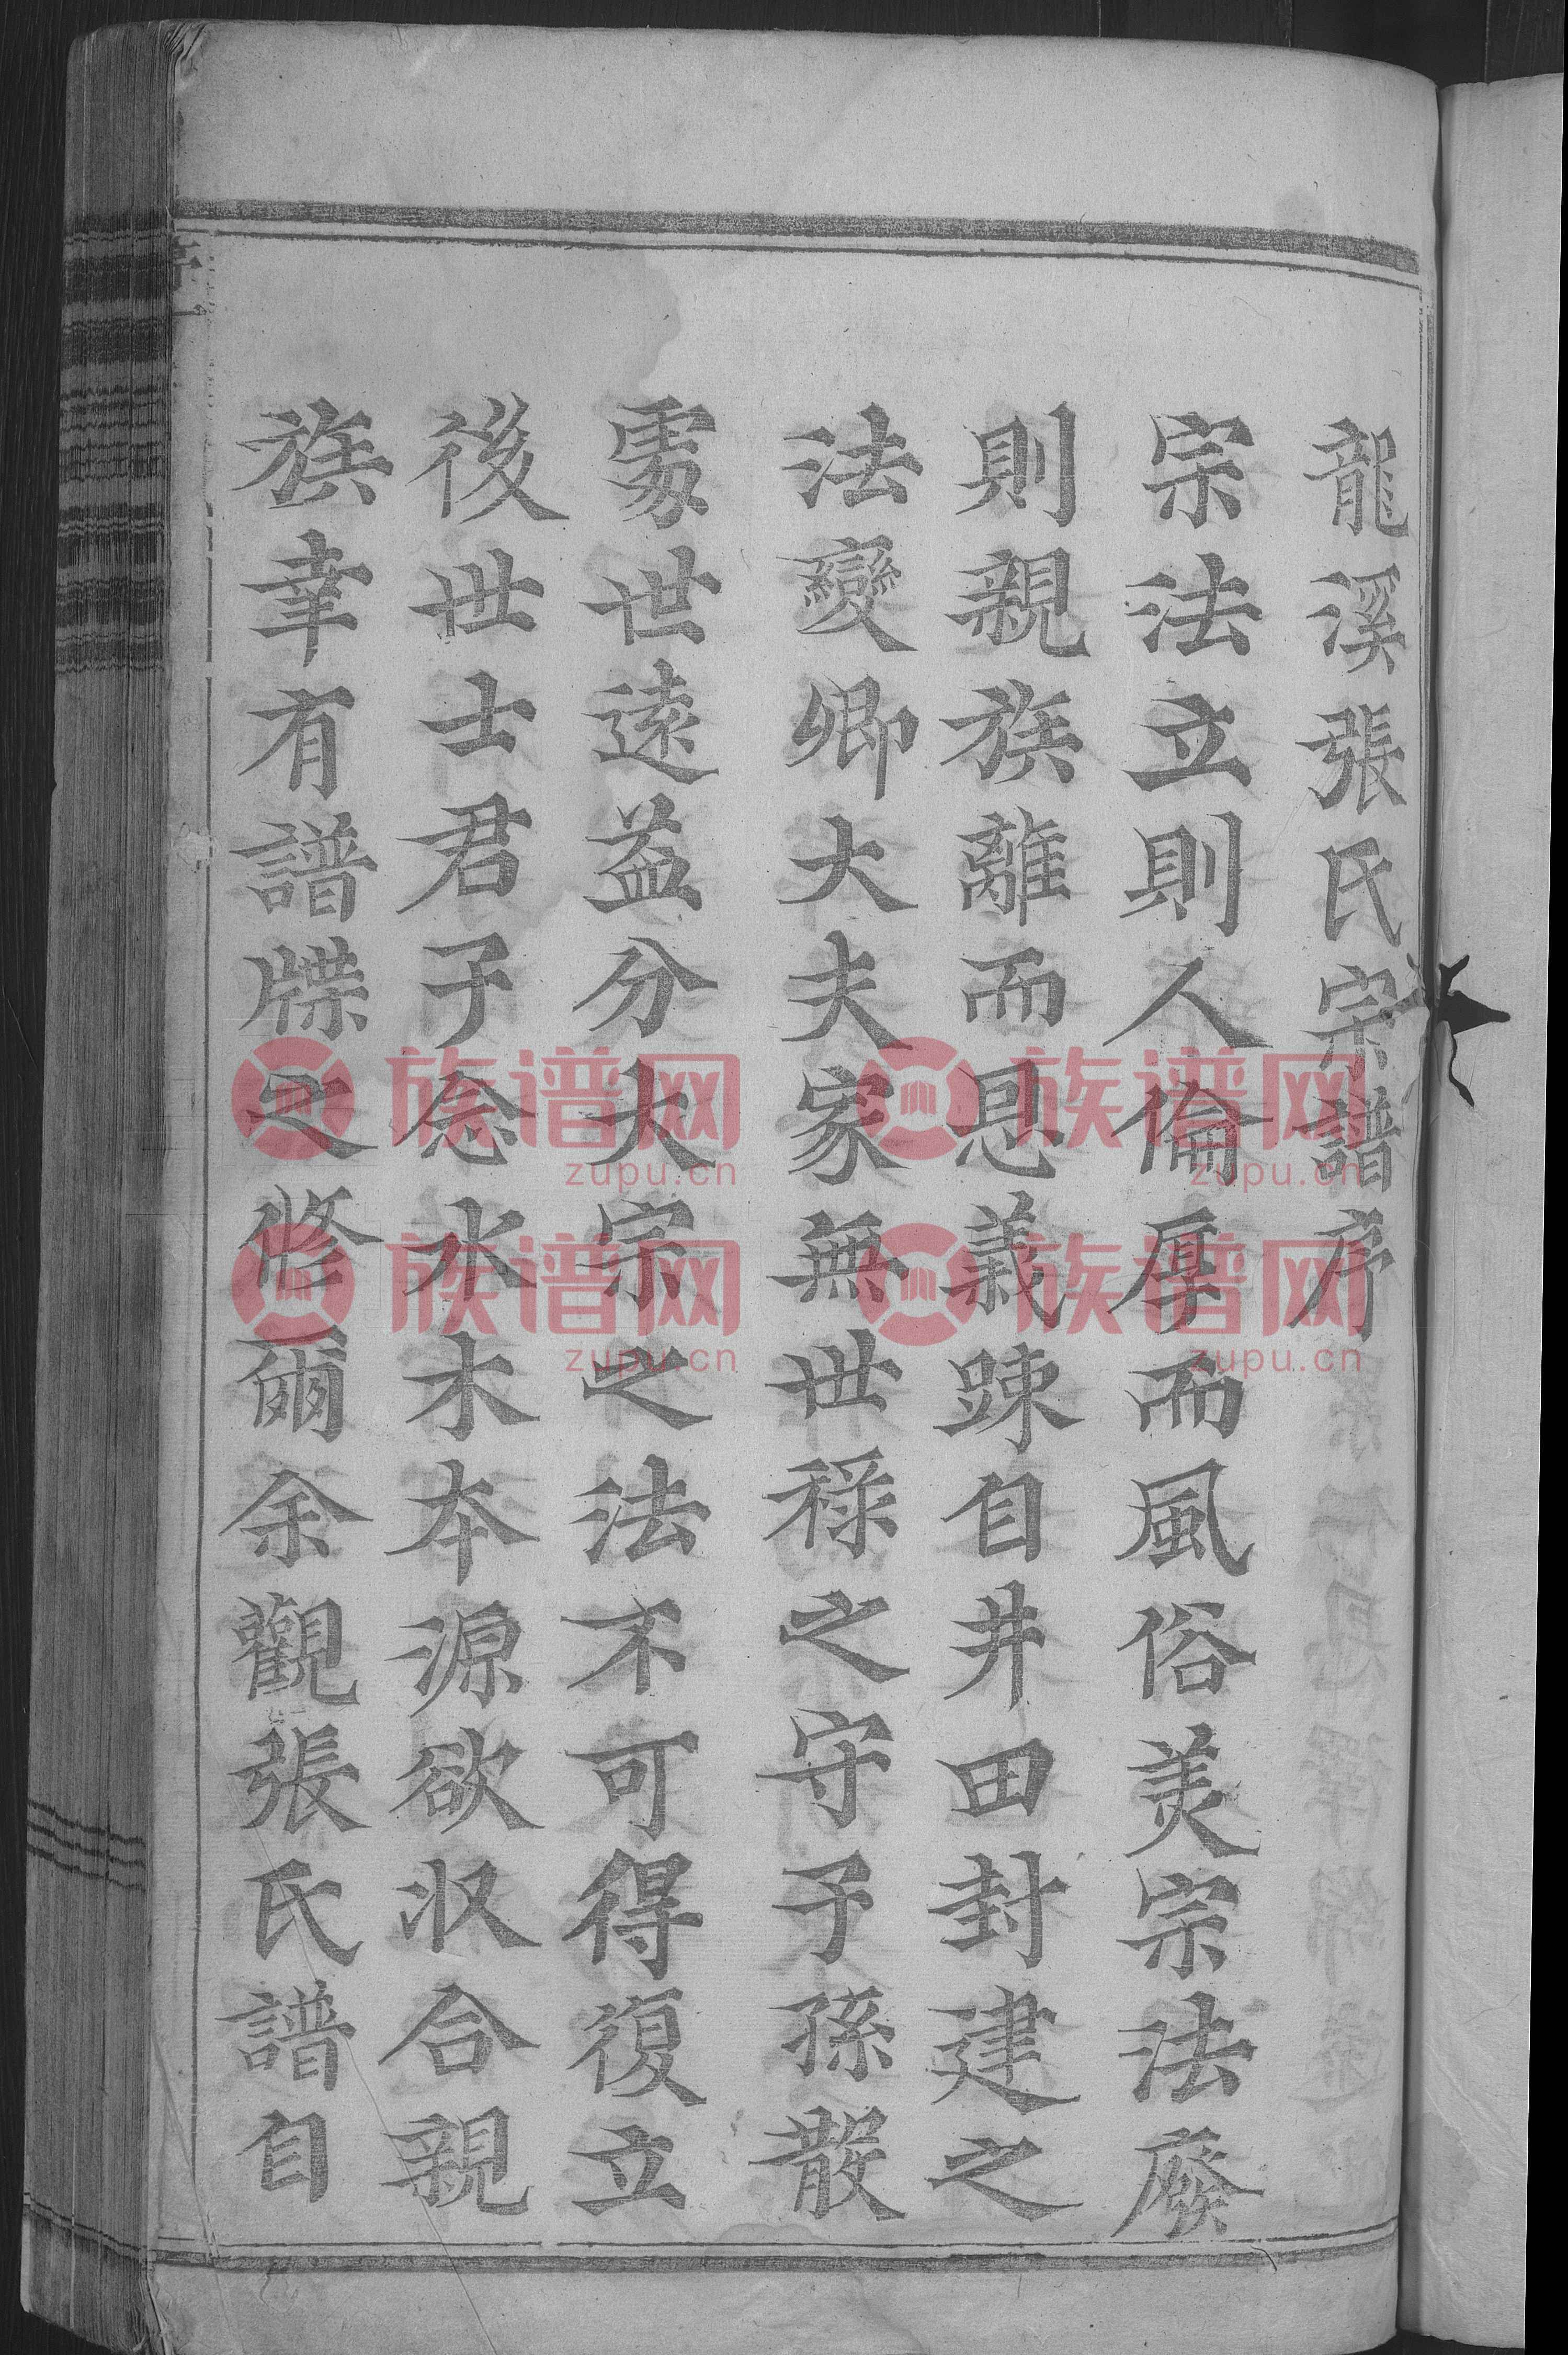 龍溪張氏宗譜序
宗法立則人倫厚而風俗美宗法廢
則親族離而恩義踈自井田封建之
法變卿大夫家無世祿之守子孫散
處世遠益分大宗之法不可得復立
後世士君子念水木本源欲収合親
族幸有譜牒之修爾余觀張氏譜自
序一
族谱网
zupu.cn
族谱网
zupu.cn
族谱网
zupu.cn
族谱网
zupu.cn